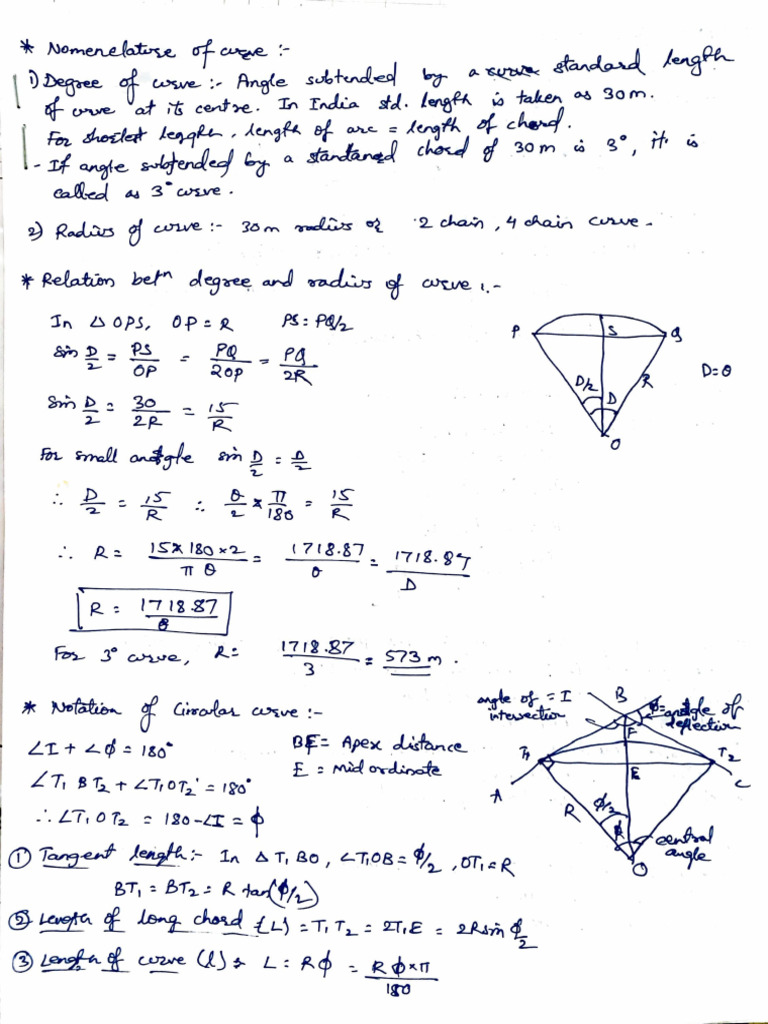 * Nomenclature of curve :-
1) Degree of curve :- Angle subtended by a curve standard length
of curve at its centre. In India std. length is taken as 30m.
For shortest length, length of arc = length of chord.
- If angle subtended by a standard chord of 30m is 3°, it is
called as 3° curve.
2) Radius of curve :- 30m radius or 2 chain, 4 chain curve -
* Relation betn degree and radius of curve :-
In Δ OPS, OP = R PS = PQ/2
sin D/2 = PS/OP = PQ/2OP = PQ/2R
sin D/2 = 30/2R = 15/R
For small angle sin D/2 = D/2
∴ D/2 = 15/R ∴ θ/2 * π/180 = 15/R
∴ R = 15*180*2/π θ = 1718.87/θ = 1718.87/D
R = 1718.87/θ
For 3° curve, R = 1718.87/3 = 573 m.
P S Q
D/2 D R
O
D = θ
* Notation of Circular curve :-
∠I + ∠ϕ = 180°
∠T1 BT2 + ∠T1OT2 = 180°
∴ ∠T1OT2 = 180-∠I = ϕ
BF = Apex distance
E = Mid ordinate
angle of intersection = I
B
ϕ = angle of deflection
F
T1 T2
E
A C
R ϕ/2 ϕ
central angle
O
① Tangent length :- In Δ T1BO, ∠T1OB = ϕ/2, OT1 = R
BT1 = BT2 = R tan(ϕ/2)
② Length of long chord (L) = T1T2 = 2T1E = 2R sin ϕ/2
③ Length of curve (l) = L = Rϕ = Rϕ*π/180